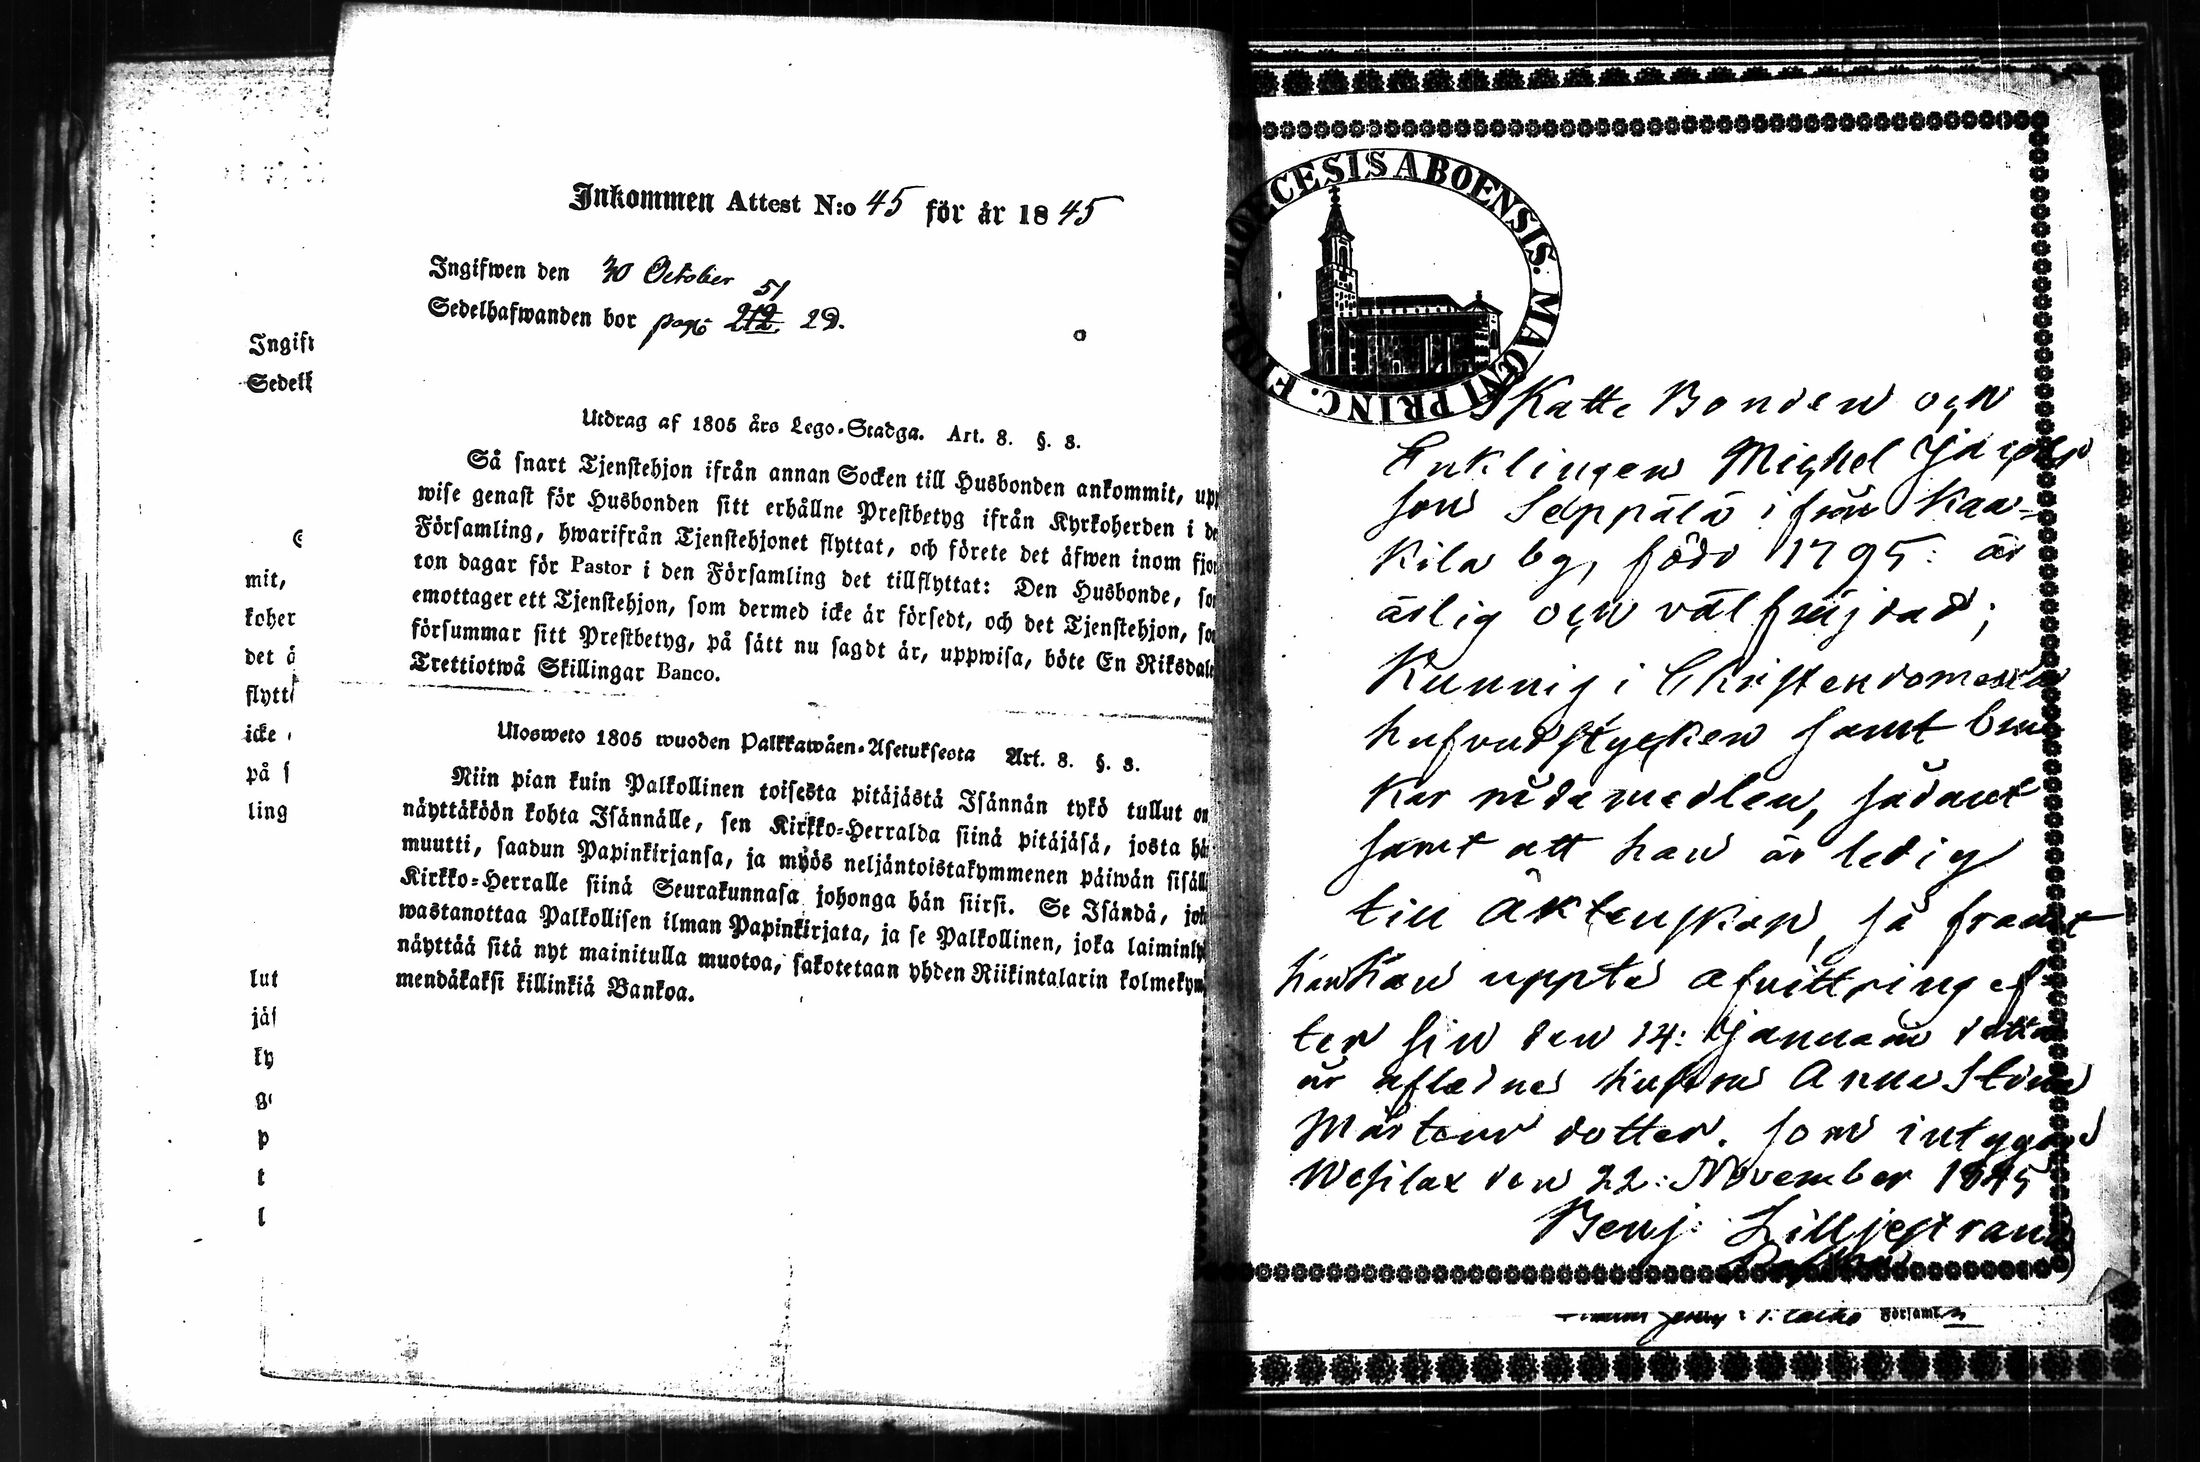 Inkommen Attest N:o 45 för år 1845
Ingifwen den 30 October
51
Sedelhafwanden bor pag: 212 29.
Utdrag af 1805 års Lego-Stadga. Art. 8. §. 3.
Så snart Tjenstehjon ifrån annan Socken till Husbonden ankommit, upp
wise genast för Husbonden sitt erhållne Prestbetyg ifrån Kyrkoherden i de
Församling, hwarifrån Tjenstehjonet flyttat, och förete det äfwen inom fjor
ton dagar för Pastor i den Församling det tillflyttat: Den Husbonde, so
emottager ett Tjenstehjon, som dermed icke är försedt, och det Tjenstehjon, so
försummar sitt Prestbetyg, på sätt nu sagdt är, uppwisa, böte En Riksdale
Trettiotwå Skillingar Banco.
Ulosweto 1805 wuoden Palkkawäen-Asetuksesta Art. 8. §. 3.
Niin pian kuin Palkollinen toisesta pitäjästä Isännän tykö tullut on
näyttäköön kohta Isännälle, sen Kirkko-Herralda siinä pitäjäsä, josta hä
muutti, saadun Papinkirjansa, ja myös neljäntoistakymmenen päiwän sisäll
Kirkko-Herralle siinä Seurakunnasa johonga hän siirsi. Se Isändä, jok
wastanottaa Palkollisen ilman Papinkirjata, ja se Palkollinen, joka laiminly
näyttää sitä nyt mainitulla muotoa, sakotetaan yhden Riikintalarin kolmekym
mendäkaksi killinkiä Bankoa.
Ingifr
Sedelh
mit,
koher
det ä
flytt
icke
på s
ling
lut
jäs
ky
g
p
t
l
DIOECESIS ABOENSIS. MAGNI PRINC. FINL.
Skatte Bonden och
Enklingen Michel Jacobs
son Seppälä ifrån Kaa-
kila by, född 1795: är
ärlig och välfräjdad;
Kunnig i Christendomens
hufvudstycken samt bru
kar nådemedlen, sådant
samt att han är ledig
till Äktenskap, så framt
han kan uppte afvittring ef
ter sin den 14: Januarii detta
år aflidne hustru Anna Stina
Mårtens dotter. som intygas
Wesilax den 22: November 1845
Benj: Lilljestrand
Församl